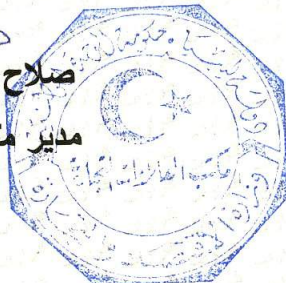 صلاح
مدير م
دولة ليبيا حكومة
مكتب العلامات التجارية
وزارة الاقتصاد والتجارة